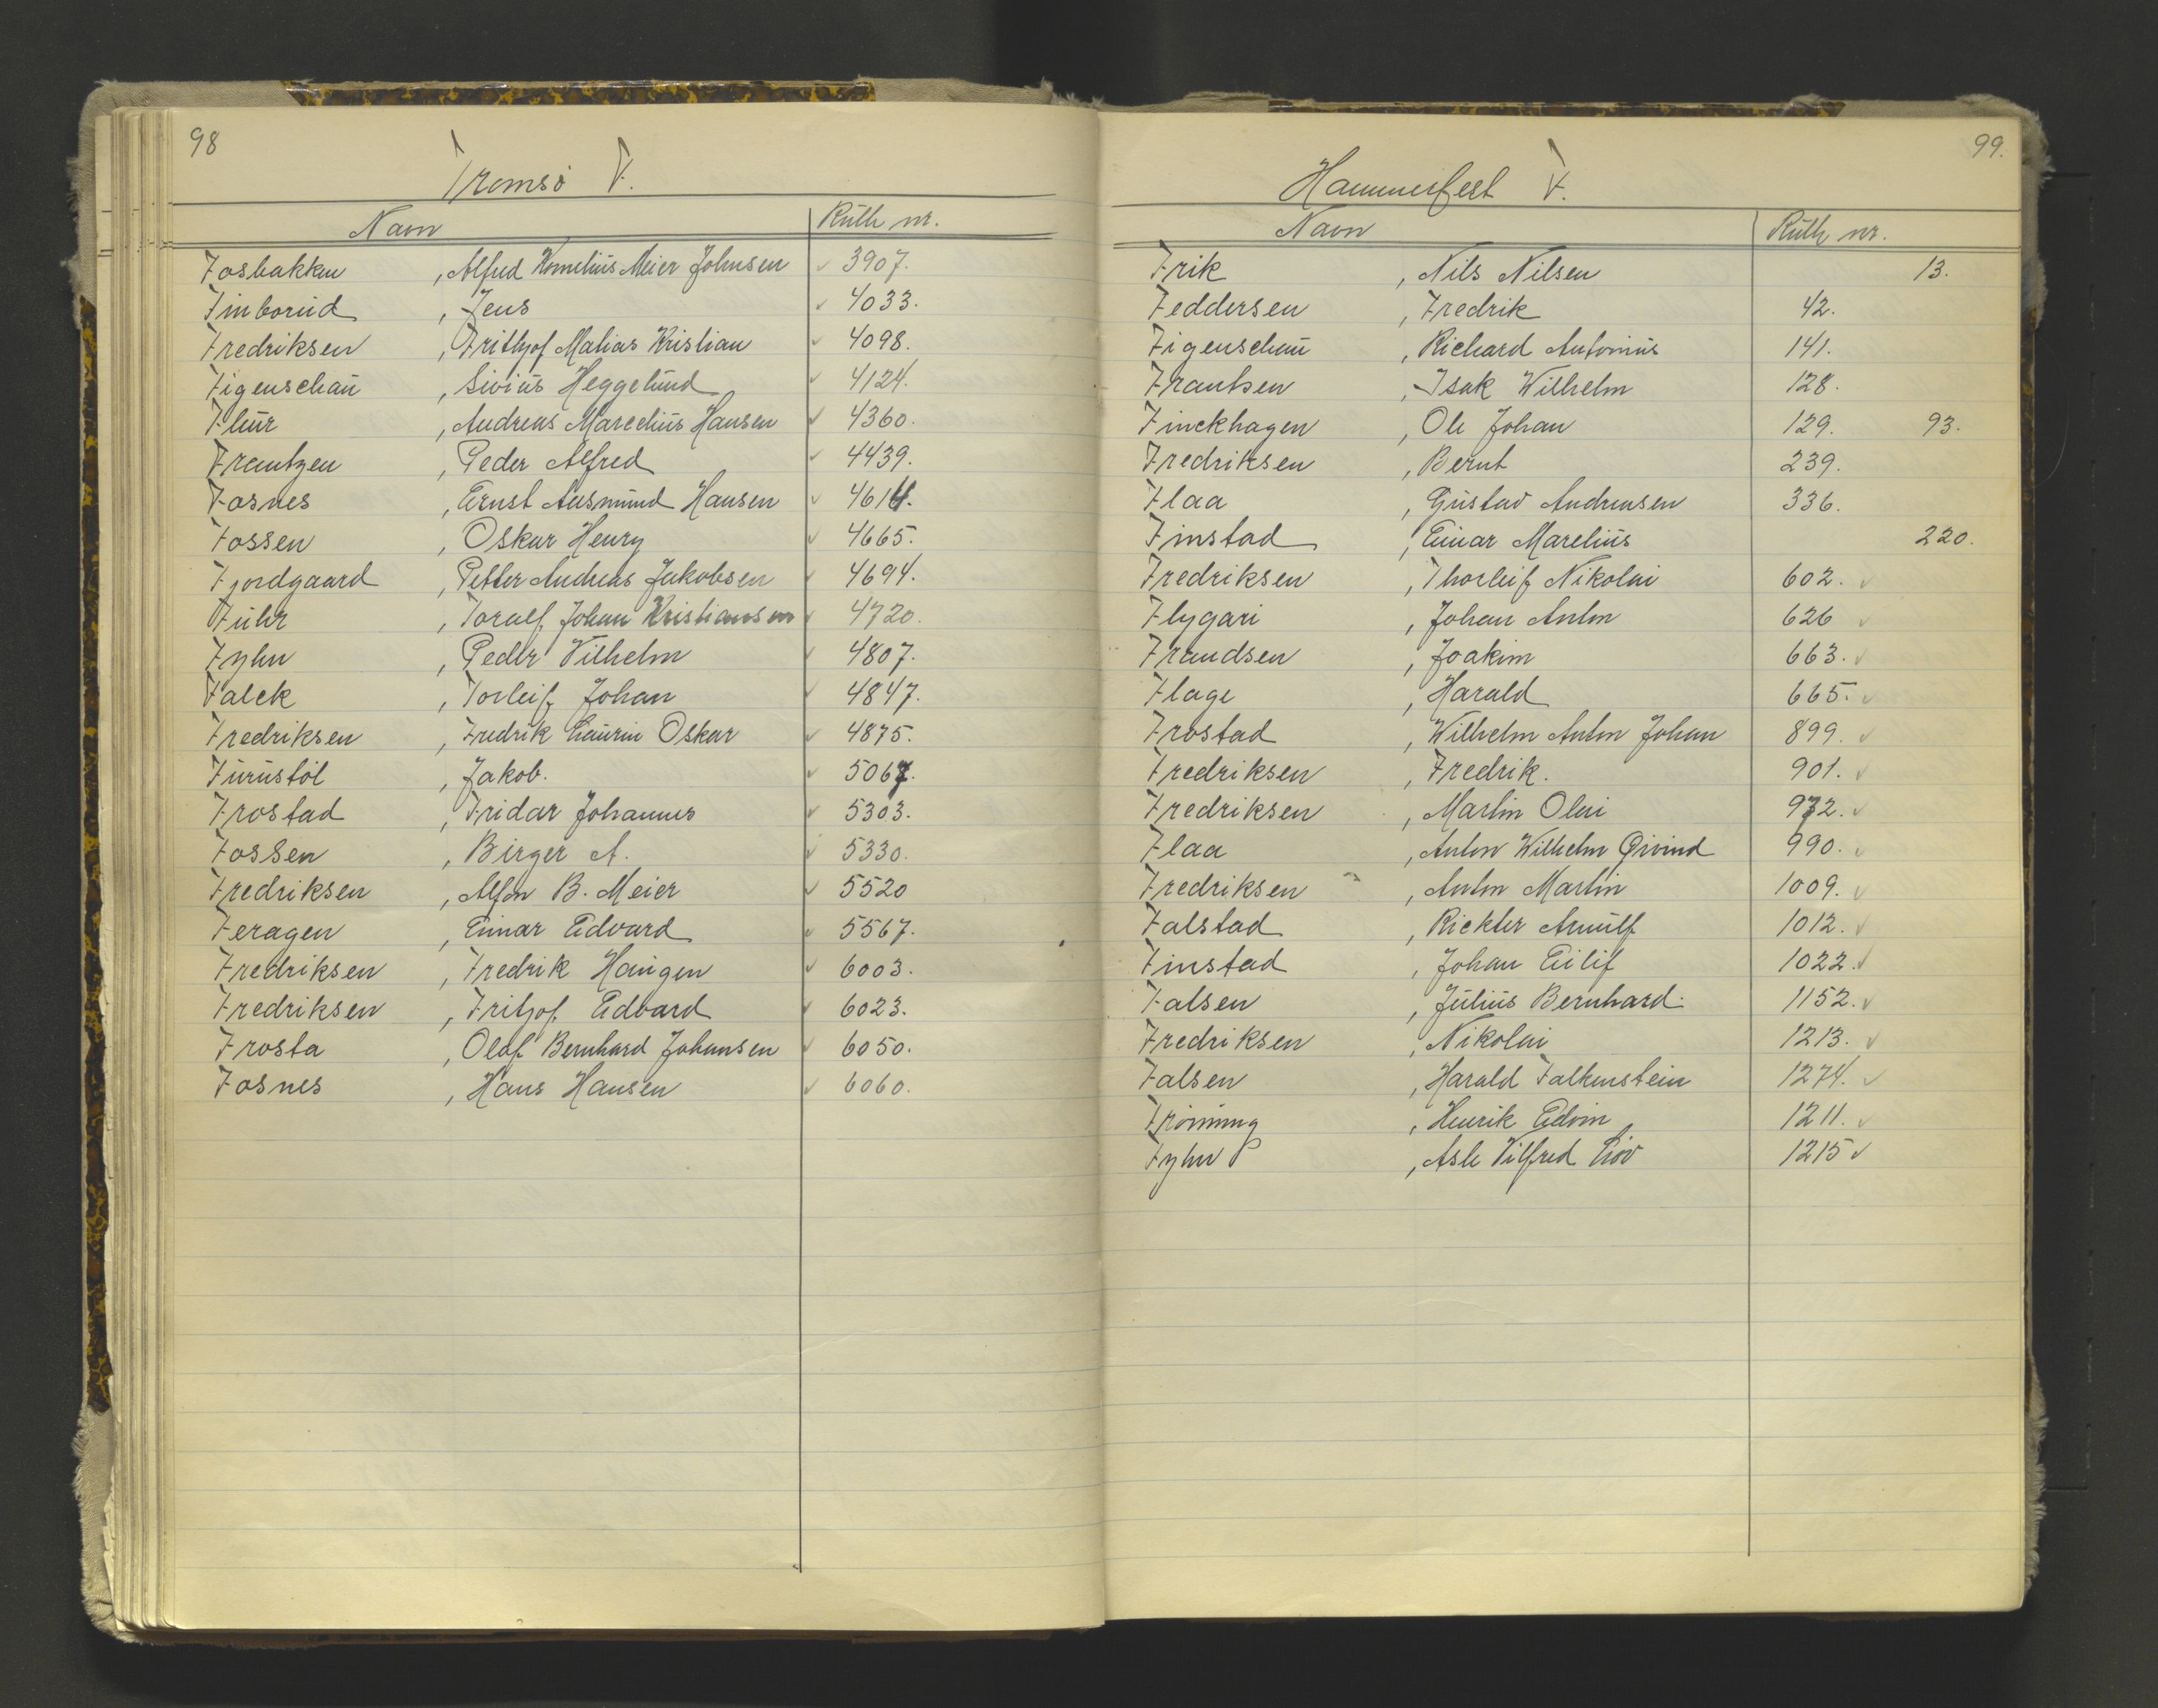 98
Tromsø F.
Navn Rulle nr.
Fosbakken, Alfred Kornelius Meier Johnsen 3907.
Finborud, Jens 4033.
Fredriksen, Frithjof Matias Kristian 4098.
Figenschau, Sivius Heggelund 4124.
Fluur, Andreas Marcelius Hansen 4360.
Frantzen, Peder Alfred 4439.
Fosnes, Ernst Aasmund Hansen 4614.
Fossen, Oskar Henry 4665.
Fjordgaard, Petter Andreas Jakobsen 4694.
Fuhr, Toralf Johan Kristiansen 4720.
Fyhn, Peder Vilhelm 4807.
Falck, Torleif Johan 4847.
Fredriksen, Fredrik Laurin Oskar 4875.
Furustøl, Jakob. 5067.
Frostad, Fridar Johannes 5303.
Fossen, Birger A. 5330.
Fredriksen, Alfon B. Meier 5520
Feragen, Einar Edvard 5567.
Fredriksen, Fredrik Haugen 6003.
Fredriksen, Fritjof Edvard 6023.
Frosta, Olaf Bernhard Johansen 6050.
Fosnes, Hans Hansen 6060.
99.
Hammerfest F.
Navn Rulle nr.
Frik, Nils Nilsen 13.
Feddersen, Fredrik 42.
Figenschau, Richard Antonius 141.
Frantsen, Isak Wilhelm 128.
Finckhagen, Ole Johan 129. 93.
Fredriksen, Bernt 239.
Flaa, Gustav Andreasen 336.
Finstad, Einar Marelius 220.
Fredriksen, Thorleif Nikolai 602.
Flygari, Johan Anton 626
Frandsen, Joakim 663.
Flage, Harald 665.
Frostad, Wilhelm Anton Johan 899.
Fredriksen, Fredrik. 901.
Fredriksen, Martin Olai 972.
Flaa, Anton Wilhelm Øivind 990.
Fredriksen, Anton Martin 1009.
Falstad, Rickter Arnulf 1012.
Finstad, Johan Eilif 1022.
Falsen, Julius Bernhard. 1152.
Fredriksen, Nikolai 1213.
Falsen, Harald Falkenstein 1274.
Frøining, Henrik Edvin 1211.
Fyhn, Asle Vilfred 1215